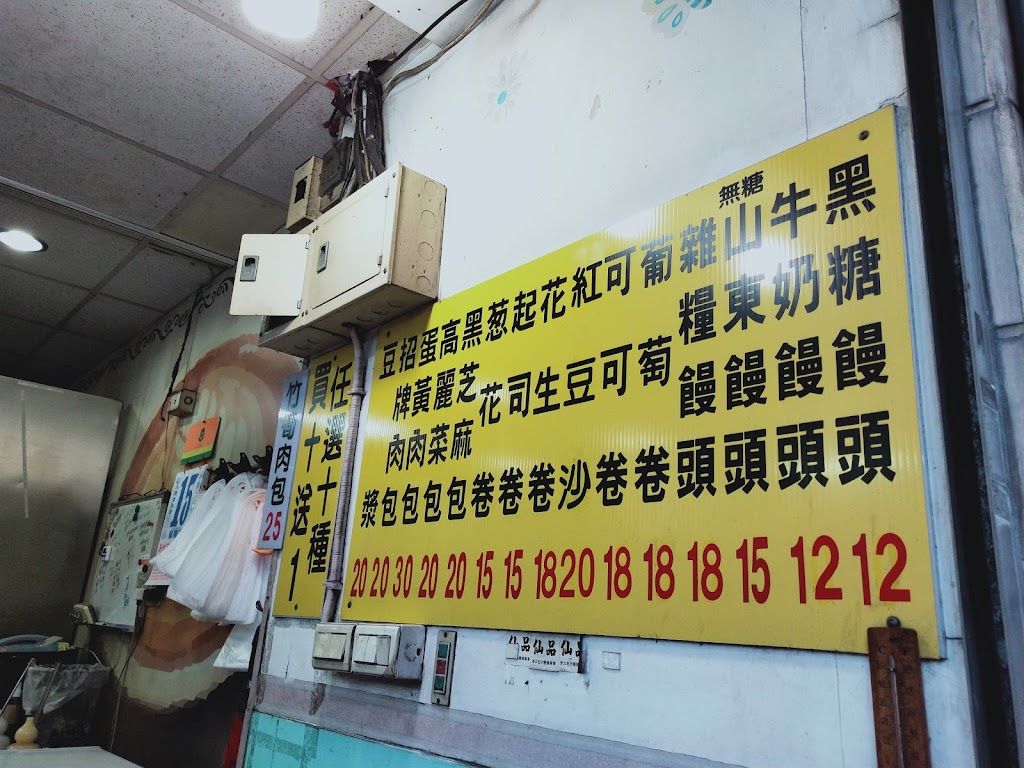 黑糖饅頭 12
牛奶饅頭 12
無糖
山東饅頭 15
雜糧饅頭 18
葡萄卷 18
可可卷 18
紅豆沙 20
花生卷 18
起司卷 15
葱花卷 15
黑芝麻包 20
高麗菜包 20
蛋黃肉包 30
招牌肉包 20
豆漿 20
任選十種
買十送1.
竹筍肉包 25
15
仙品仙品仙品